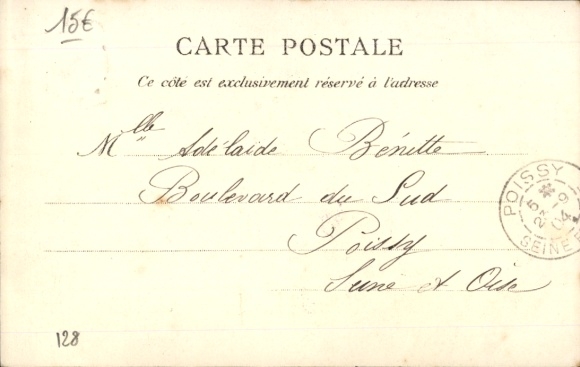 15€
CARTE POSTALE
Ce côté est exclusivement réservé à l'adresse
Mlle Adélaïde Bénette
Boulevard du Sud
Poissy
Seine et Oise
POISSY
SEINE
128